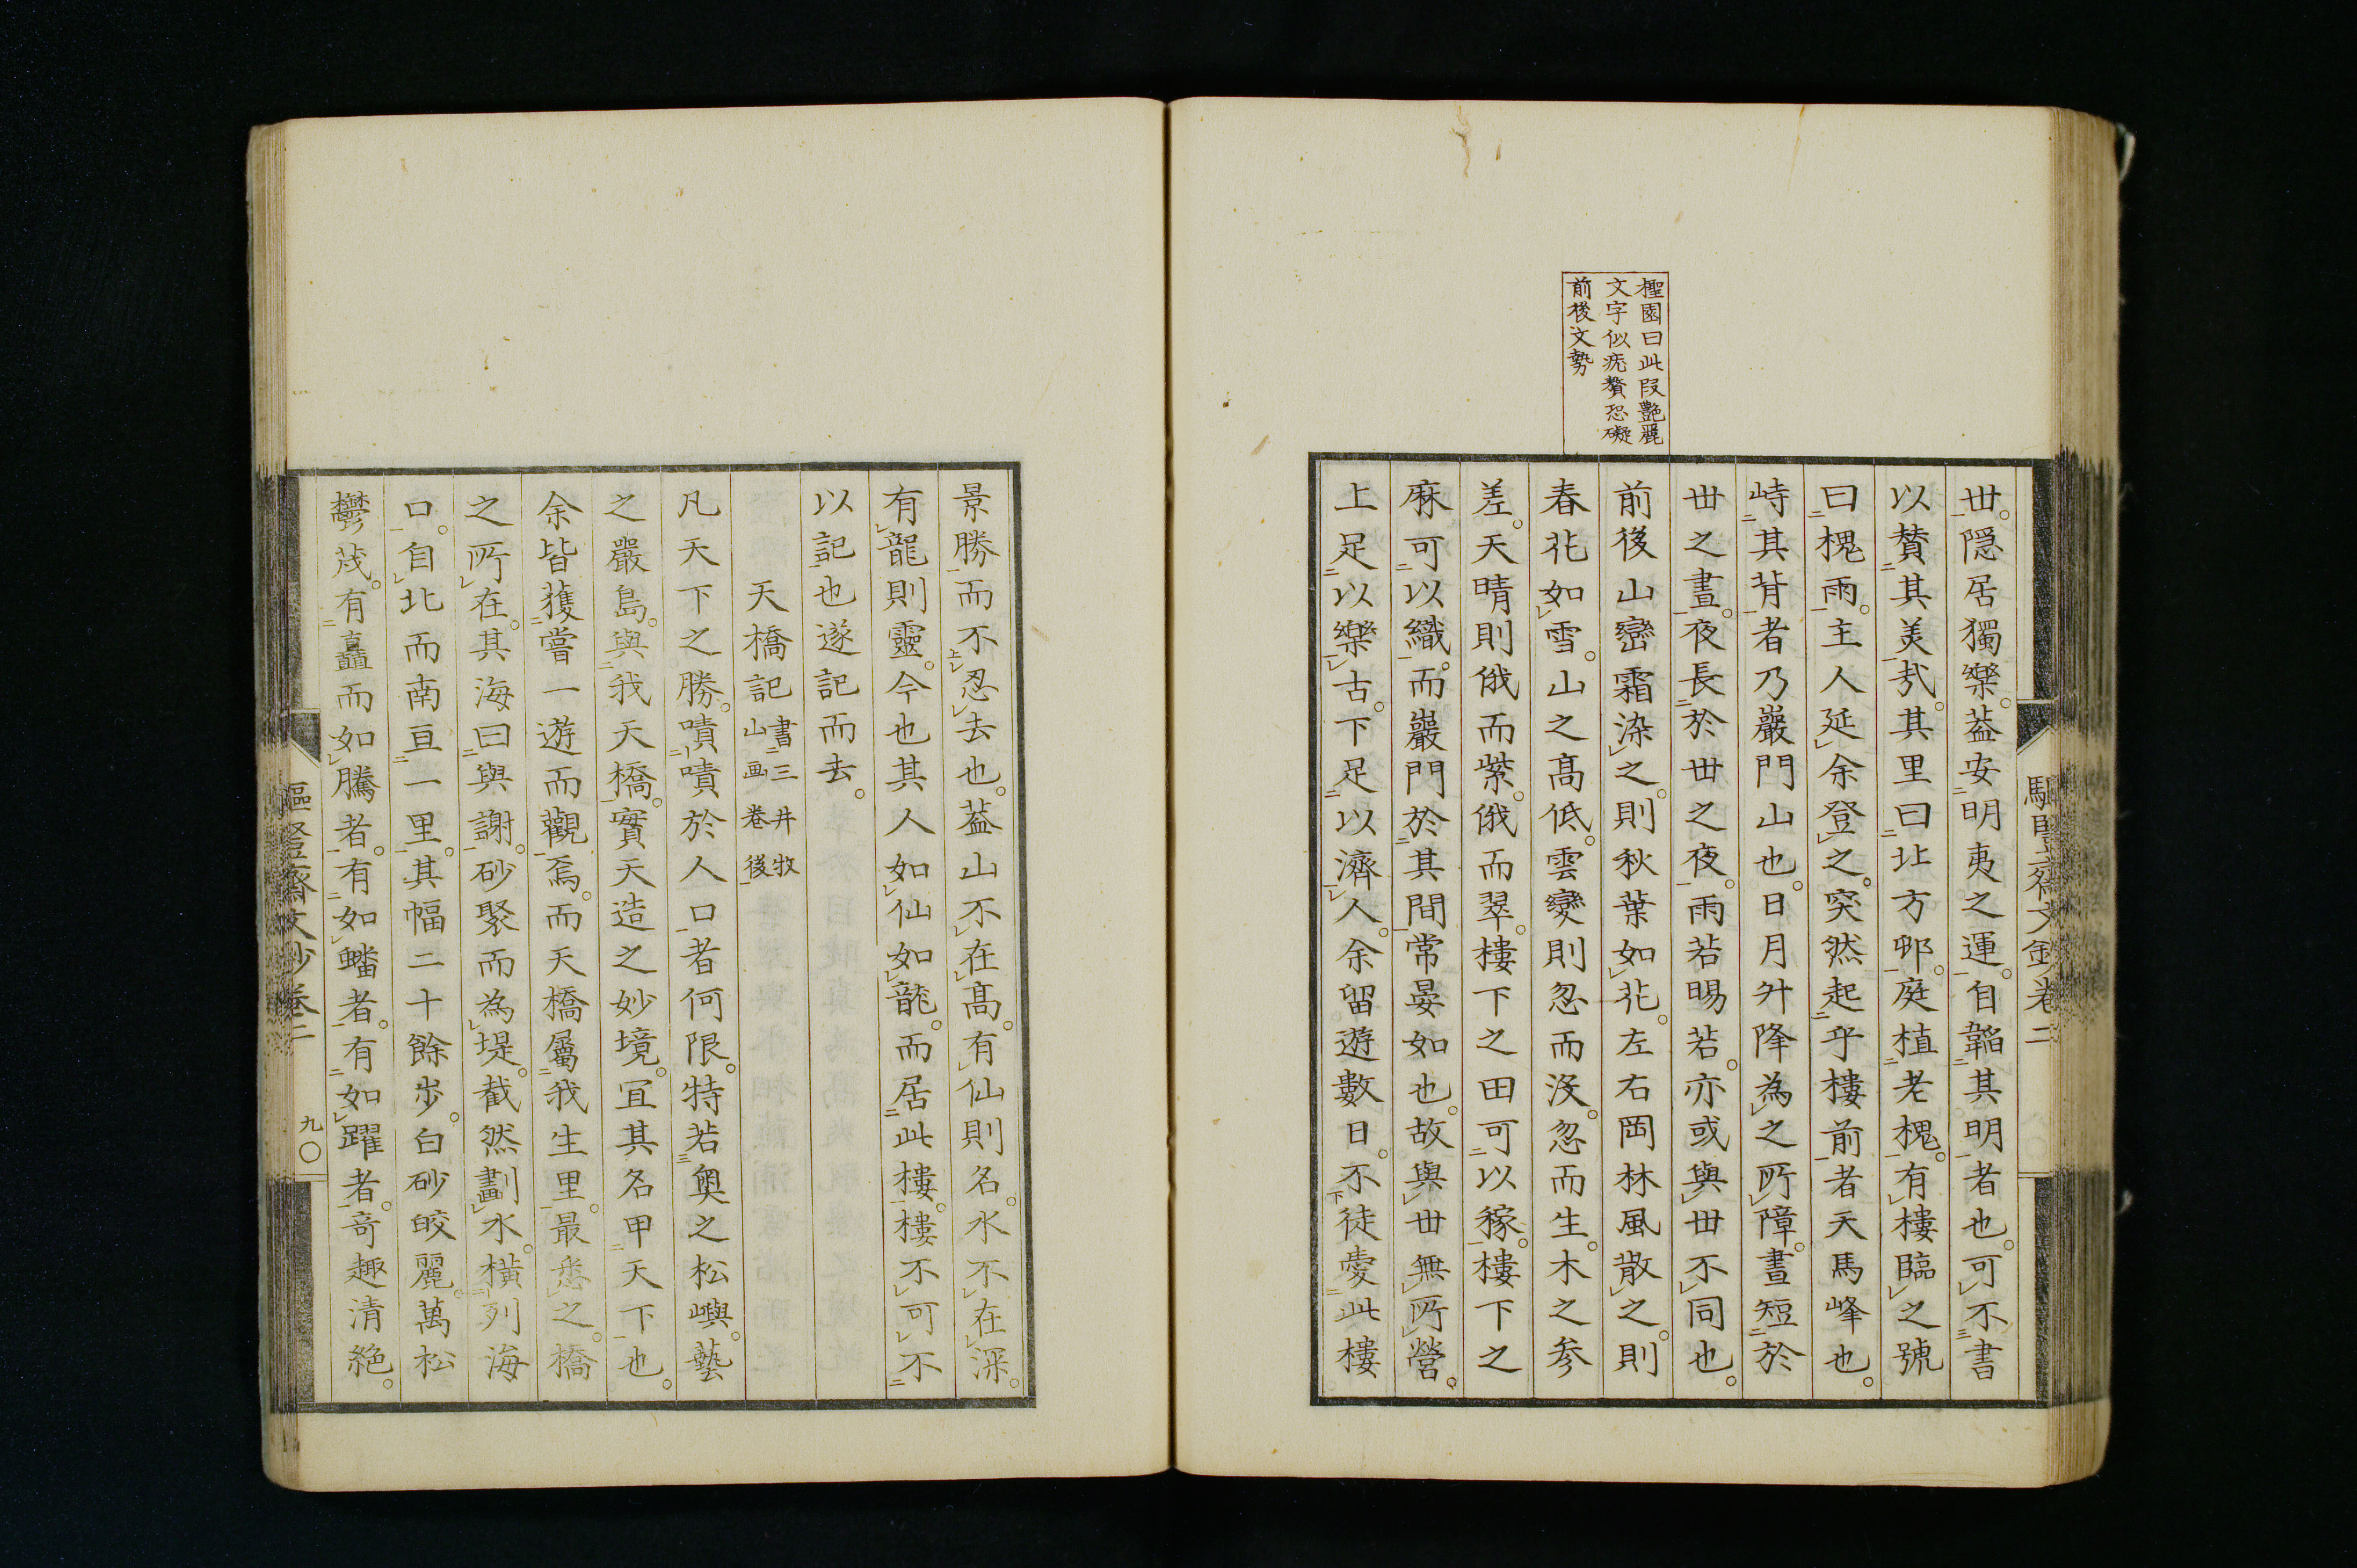 檉園曰此段艷麗
文字似疣贅恐礙
前後文勢
世隠居獨樂。葢安明夷之運。自韜其明者也。可不書
以賛其美㢤。其里曰北方邨。庭植老槐。有樓臨之號
曰槐雨。主人延余登之。突然起乎樓前者天馬峰也。
峙其背者乃巖門山也。日月升降為之所障。晝短於
世之晝。夜長於世之夜。雨若暘若。亦或與世不同也。
前後山巒霜染之。則秋葉如花。左右岡林風散之。則
春花如雪。山之高低。雲變則忽而没。忽而生。木之参
差。天晴則俄而紫。俄而翠。樓下之田可以稼。樓下之
麻可以織。而巖門於其間常晏如也。故與世無所營。
上足以樂古。下足以濟人。余留遊數日。不徒愛此樓
景勝而不忍去也。葢山不在高。有仙則名。水不在深。
有龍則靈。今也其人如仙如龍。而居此樓。樓不可不
以記也遂記而去。
天橋記書三井牧山画巻後
凡天下之勝。嘖嘖於人口者何限。特若奥之松嶼。藝
之嚴島。與我天橋。實天造之妙境。冝其名甲天下也。
余皆獲嘗一遊而觀焉。而天橋屬我生里。最悉之。橋
之所在。其海曰與謝。砂聚而為堤。截然劃水。横列海
口。自北而南亘一里。其幅二十餘歩。白砂皎麗。萬松
鬱茂。有矗而如騰者。有如蟠者。有如躍者。奇趣清絶。
文鈔巻二
九〇